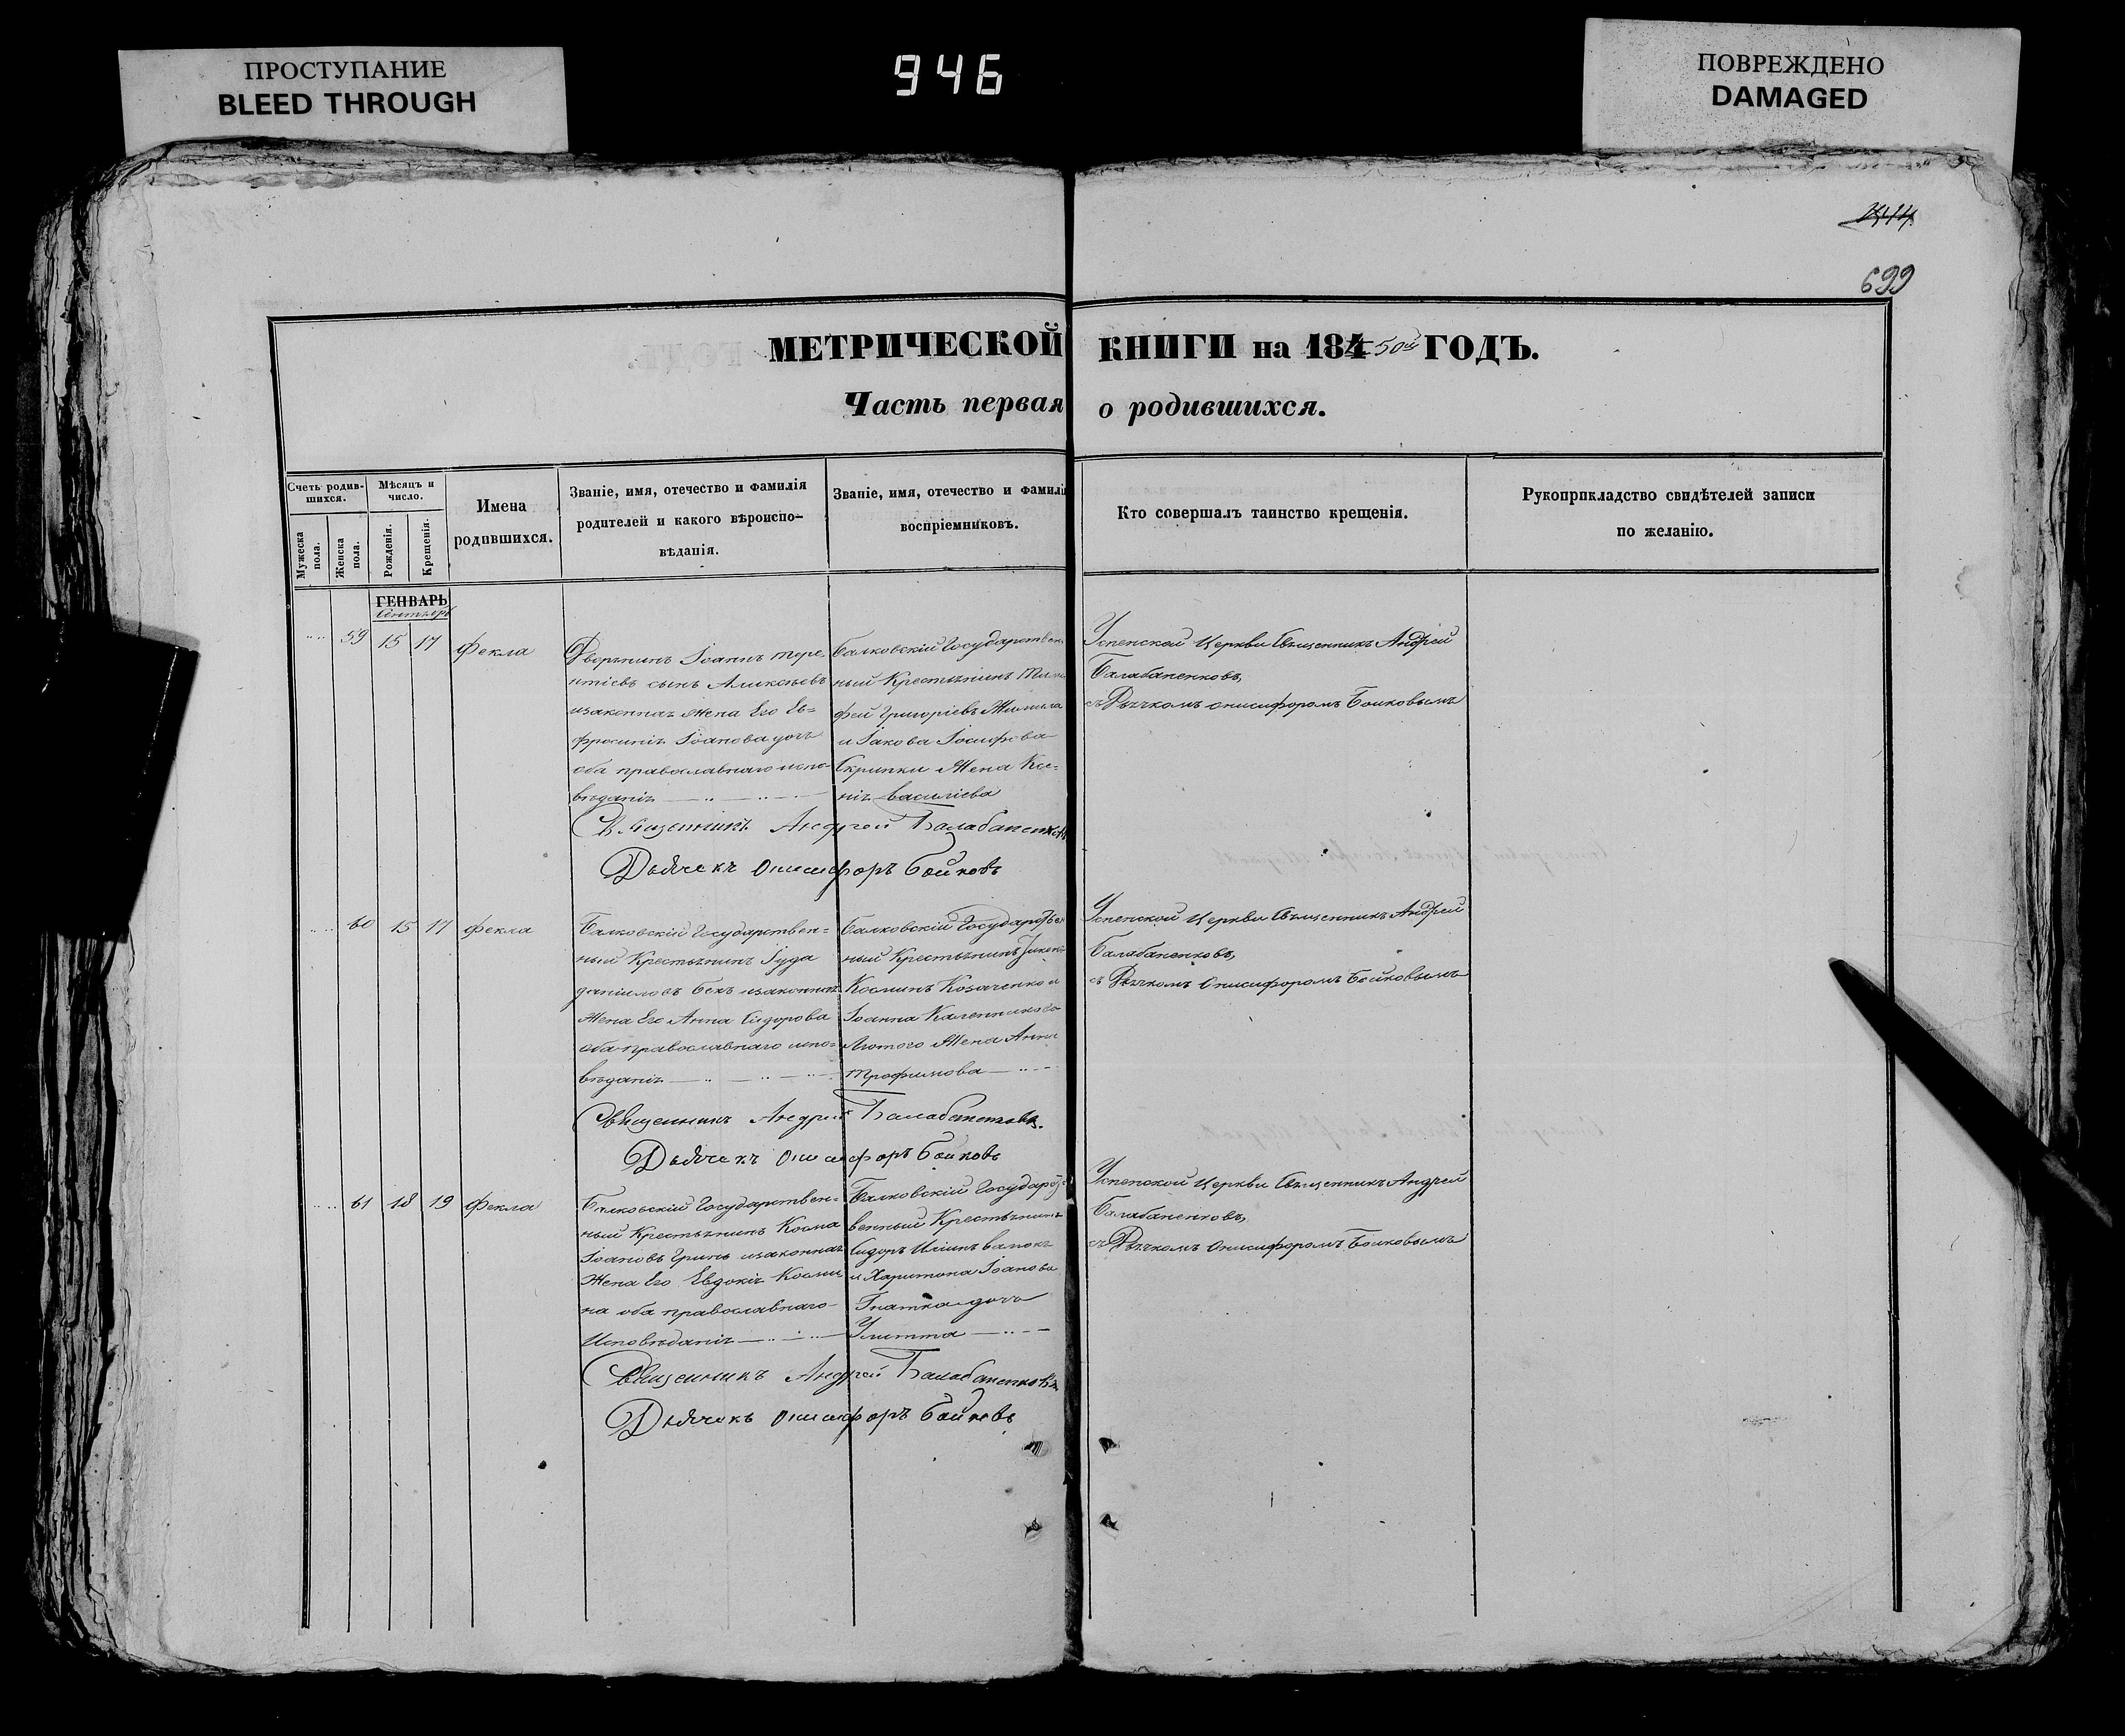 ПРОСТУПАНИЕ
BLEED THROUGH
946
ПОВРЕЖДЕНО
DAMAGED
699
МЕТРИЧЕСКОЙ КНИГИ на 184 50й ГОДЪ.
Часть первая о родившихся.
Счетъ родив-
шихся.
Мужеска пола.
Женска пола.
Мѣсяцъ и
число.
Рожденія.
Крещенія.
Имена
родившихся.
Званіе, имя, отечество и фамилія
родителей и какого вѣроиспо-
вѣданія.
Званіе, имя, отечество и фамилі
воспріемниковъ.
Кто совершалъ таинство крещенія.
Рукоприкладство свидѣтелей записи
по желанію.
ГЕНВАРЬ
Сентября
59 15 17 Фекла
Дворянинъ Іоаннъ Тере
нтіевъ сынъ Алексѣевъ
изаконная Жена Его Ев=
фросинія Іоанова дочь
оба православнаго испо-
вѣданія
Балковскій Государствен
ный Крестьянинъ Тимо
фей Григоріевъ
и Іакова Іосифова
Скрипки Жена Ксе=
нія Василіева
Успенской Церкви Священникъ Андрей
Балабаненковъ,
съ Дьячкомъ Онисифоромъ Бойковымъ
Священникъ Андрей Балабаненковъ
Дьячекъ Онисифоръ Бойковъ
60 15 17 Фекла
Балковскій Государствен=
ный Крестьянинъ Іуда
Даніиловъ Бекъ изаконная
Жена Его Анна Сидорова
оба православнаго испо=
вѣданія
Балковскій Государствен
ный Крестьянинъ
Косминъ Козаченко и
Іоанна Каленикова
Лютого Жена Анна
Трофимова
Успенской Церкви Священникъ Андрей
Балабаненковъ,
съ Дьячкомъ Онисифоромъ Бойковымъ
Священникъ Андрей Балабаненковъ.
Дьячекъ Онисифоръ Бойковъ
61 18 19 Фекла
Балковскій Государствен=
ный Крестьянинъ Косма
Іоановъ Гринь изаконная
Жена Его Евдокія Косми
на оба православнаго
Исповѣданія
Балковскій Государст
венный Крестьянинъ
Сидоръ Иліинъ
и Харитона Іоанова
Гнатка дочь
Улитта
Успенской Церкви Священникъ Андрей
Балабаненковъ,
съ Дьячкомъ Онисифоромъ Бойковымъ
Священникъ Андрей Балабаненковъ
Дьячекъ Онисифоръ Бойковъ